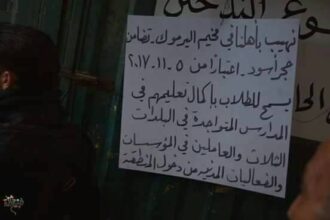 ممنوع التدخين
نهيب بأهلنا في مخيم اليرموك - تضامن
حجر أسود - اعتباراً من ٥-١١-٢٠١٧
يسمح للطلاب بإكمال تعليمهم في
المدارس المتواجدة في البلدات
الثلاث والعاملين في المؤسسات
والفعاليات المدنية من دخول المنطقة